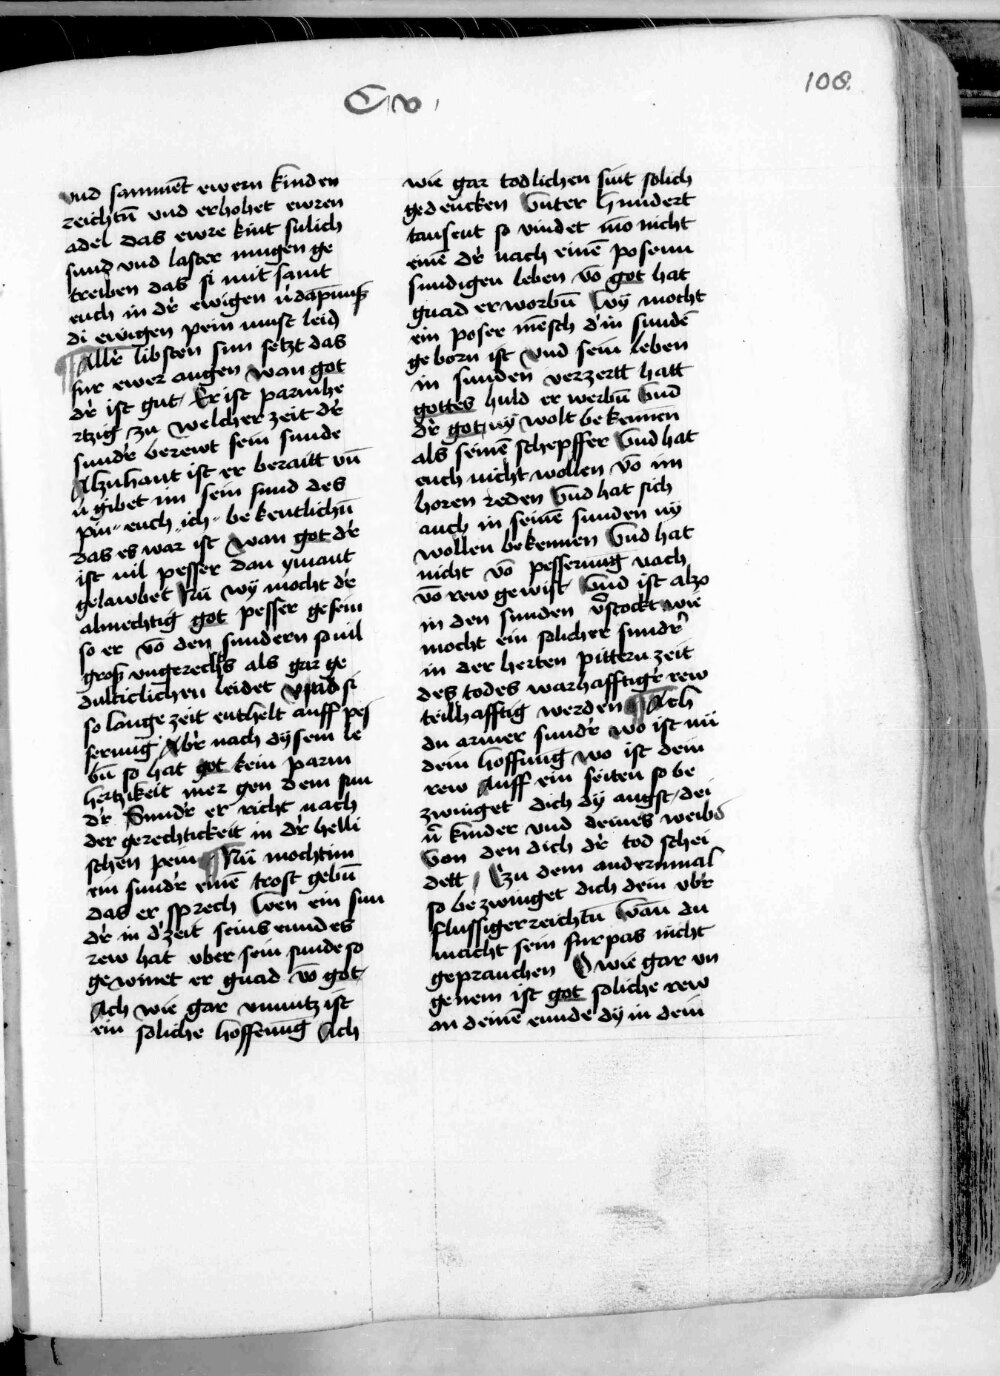 108.
C v
vnd sammēt ewern kinden
reichtū vnd erhohet ewren
adel das ewre kint sulich
sund vnd laster mugen ge
treiben das si mit samt
euch in dr̄ ewigen v̄dāpnuß
di ewigen pein must leid
¶ Allr̄ libsten sun setzt das
fur ewer augen wan got
dr̄ ist gut Er ist parmhe
rtzig zu welcher zeit dr̄
sundr̄ berewt sein sunde
Alzuhant ist er beraitt vn̄
v̄gibet im sein sund des
pin euch ich bekentlichū
das es war ist wan got dr̄
ist vil pesser dan ymant
gelawbet Nū wÿ mocht dr̄
almechtig got pesser gesein
so er vō den sundern souil
groß vngerechts als gar ge
dulticlichen leidet vnd si
so lange zeit enthelt auff pes
serung Abr̄ nach dÿsem le
bū so hat got kein parm
hertzikeit mer gen dem sun
dr̄ Sundr̄ er richt nach
der gerechtickeit in dr̄ helli
schen pein ¶ Nū mocht im
ein sundr̄ einē trost gebū
das er sprech Wen ein sun
dr̄ in d'zeit seins eundes
rew hat vber sein sunde so
gewinet er gnad vō got
Ach wie gar vnnutz ist
ein soliche hoffenung Ach
wie gar todlichen sint solich
gedencken Vnter hundert
tausent so vindet mō nicht
einē dr̄ nach einē posenn
sundigen leben vō got hat
gnad erworbū Wÿ mocht
ein poser mēsch d'in sundē
geborn ist vnd sein leben
in sunden verzertt hatt
gottes huld er werbū Vnd
dr̄ got nÿ wolt bekennen
als seinē schepffer Vnd hat
euch nicht wollen vō im
horen reden Vnd hat sich
auch in seinē sunden nÿ
wollen bekennen Vnd hat
nicht vō pesserung nach
vō rew gewist Vnd ist alzo
in den sunden v̄stockt wie
mocht ein solicher sundr̄
in der herten pittern zeit
des todes warhafftigr̄ rew
teilhafftig werden ¶ Ach
du armer sundr̄ wo ist nū
dein hoffnung wo ist dein
rew Auff ein seiten so be
zwinget dich dÿ angst dei
n̄ kinder vnd deines weibs
Von den dich dr̄ tod schei
dett Czu dem andernmal
so bezwinget dich dein vbr̄
flussiger reichtū Wan du
macht sein furpas nicht
geprauchen O wie gar vn
genem ist got soliche rew
an deinē eunde dÿ in dein